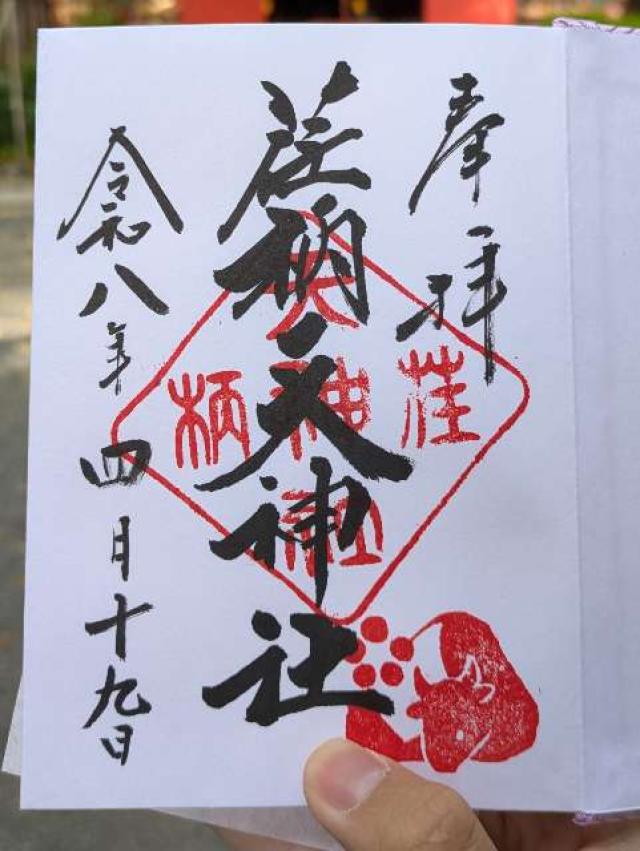 奉拝
荏柄天神社
令和八年四月十九日
荏柄天神社